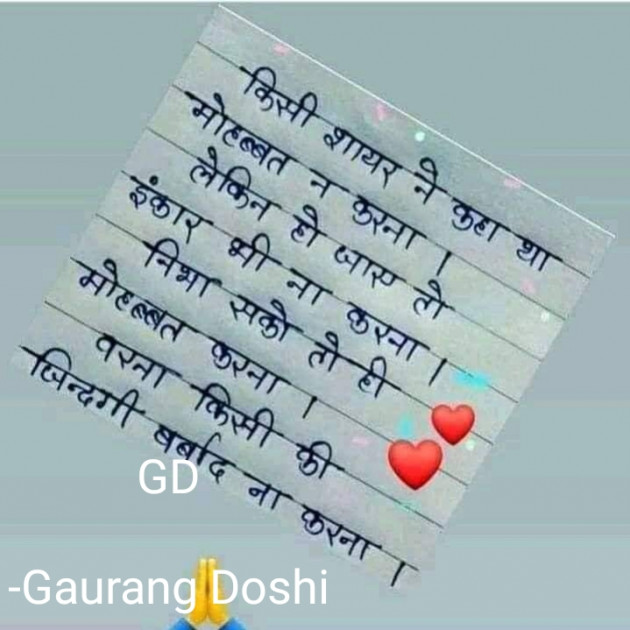 किसी शायर ने कुहा था
मोहब्बत न करना ।
लेकिन हो जाए तो
इंकार भी ना करना ।
निभा सको तो ही
मोहब्बत करना ।
वरना किसी की
जिन्दगी बर्बाद ना करना ।
GD
-Gaurang Doshi